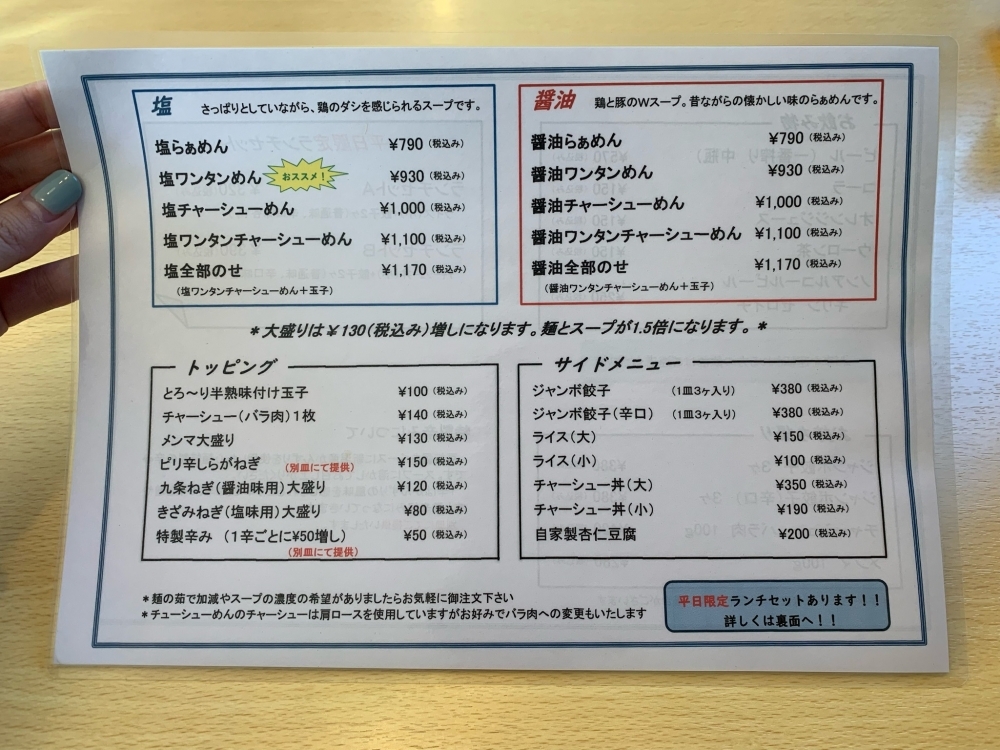 塩 さっぱりとしていながら、鶏のダシを感じられるスープです。
塩らぁめん ¥790(税込み)
塩ワンタンめん おススメ! ¥930(税込み)
塩チャーシューめん ¥1,000(税込み)
塩ワンタンチャーシューめん ¥1,100(税込み)
塩全部のせ ¥1,170(税込み)
(塩ワンタンチャーシューめん+玉子)
醤油 鶏と豚のWスープ。昔ながらの懐かしい味のらぁめんです。
醤油らぁめん ¥790(税込み)
醤油ワンタンめん ¥930(税込み)
醤油チャーシューめん ¥1,000(税込み)
醤油ワンタンチャーシューめん ¥1,100(税込み)
醤油全部のせ ¥1,170(税込み)
(醤油ワンタンチャーシューめん+玉子)
*大盛りは¥130(税込み)増しになります。麺とスープが1.5倍になります。*
トッピング
とろ〜り半熟味付け玉子 ¥100(税込み)
チャーシュー(バラ肉)1枚 ¥140(税込み)
メンマ大盛り ¥130(税込み)
ピリ辛しらがねぎ (別皿にて提供) ¥150(税込み)
九条ねぎ(醤油味用)大盛り ¥120(税込み)
きざみねぎ(塩味用)大盛り ¥80(税込み)
特製辛み (1辛ごとに¥50増し) ¥50(税込み)
(別皿にて提供)
サイドメニュー
ジャンボ餃子 (1皿3ヶ入り) ¥380(税込み)
ジャンボ餃子(辛口) (1皿3ヶ入り) ¥380(税込み)
ライス(大) ¥150(税込み)
ライス(小) ¥100(税込み)
チャーシュー丼(大) ¥350(税込み)
チャーシュー丼(小) ¥190(税込み)
自家製杏仁豆腐 ¥200(税込み)
*麺の茹で加減やスープの濃度の希望がありましたらお気軽に御注文下さい
*チューシューめんのチャーシューは肩ロースを使用していますがお好みでバラ肉への変更もいたします
平日限定ランチセットあります!!
詳しくは裏面へ!!